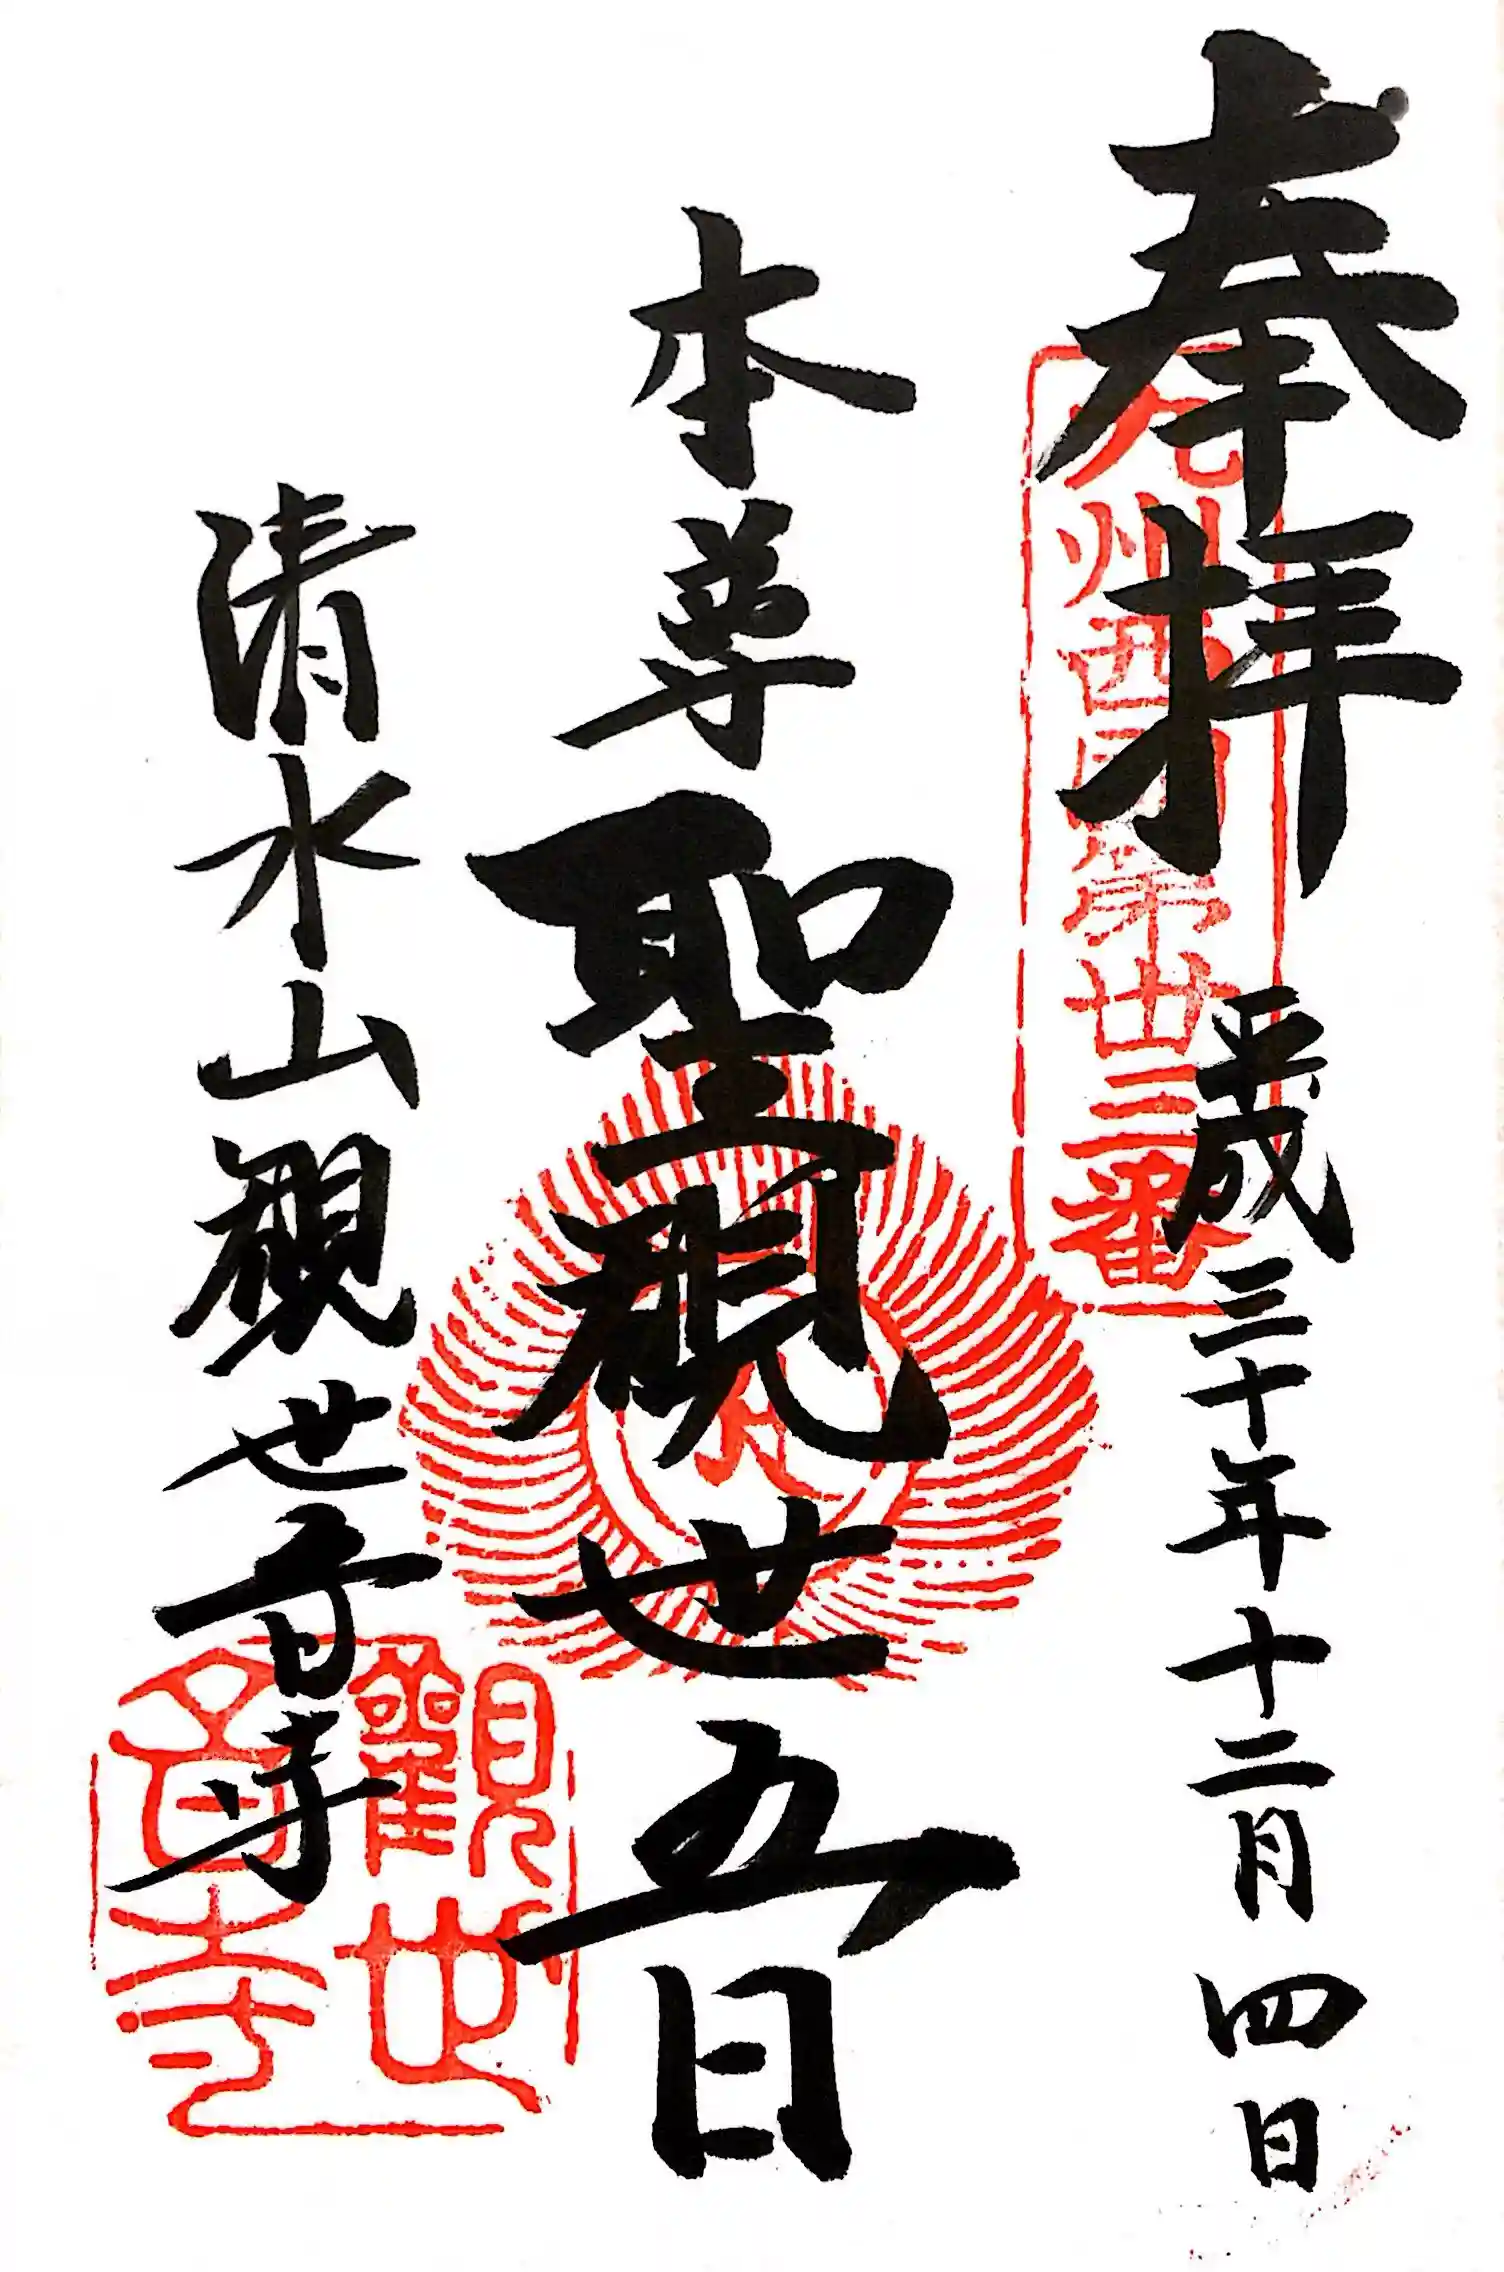 奉拝
九州西国第卅三番
平成三十年十二月四日
本尊
聖観世音
清水山観世音寺
觀世音寺